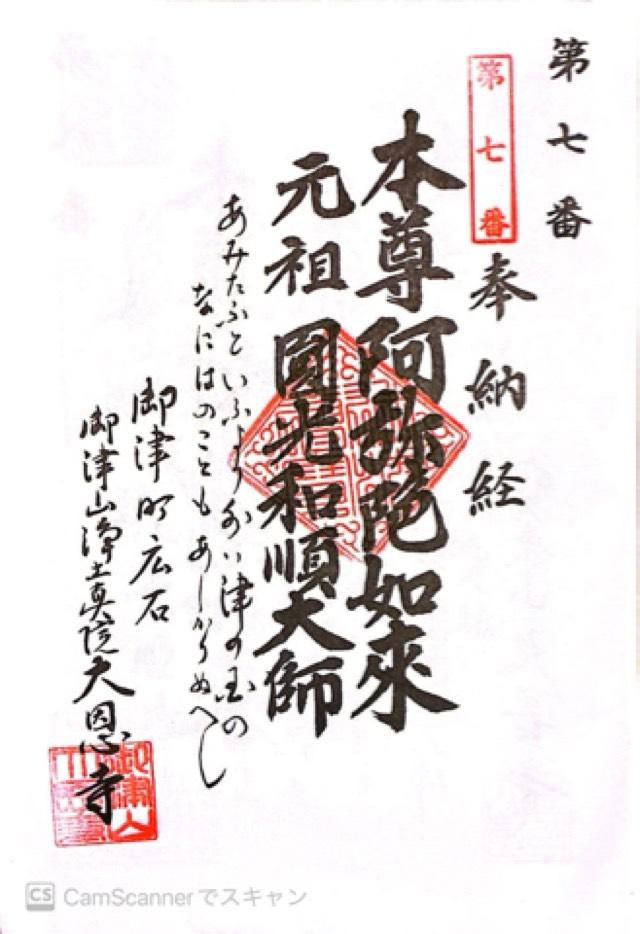 第七番
第七番
奉納経
本尊阿弥陀如來
元祖圓光和順大師
あみたふといふより外は津の国の
なにはのこともあしかりぬへし
御津町広石
御津山浄土真院大恩寺
CS CamScannerでスキャン